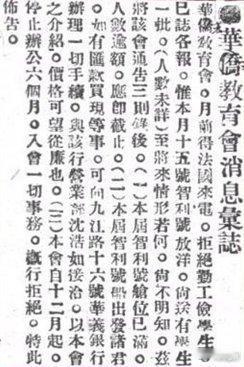 華僑教育會消息彙誌
華僑教育會。月前得法國來電。拒絕勤工儉學生。
已誌各報。惟本月十五號智利號放洋。尙送有學生
一批。(人數未詳)至將來情形若何。尙不明知。茲
將該會通告三則錄後。(一)本屆智利號艙位已滿。
人數逾額。應卽截止。(二)本屆智利號船出發諸君
。如有匯款買現等事。可向九江路十六號華義銀行
辦理一切手續。與該行營業部沈浩如接洽。以本會
之介紹。價格可望從廉也。(三)本會自十二月起。
停止辦公六個月。入會一切事務。槪行拒絕。特此
佈告。